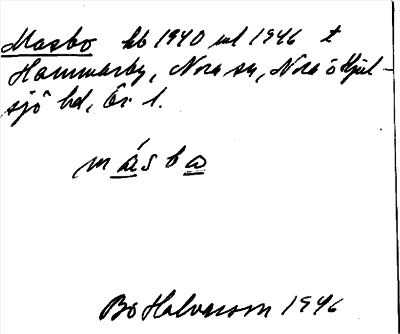 Masbo hb 1940 ml 1946 t
Hammarby, Nora sn, Nora o Hjul-
sjö bd, Ör. l.
másbo
Bo Halvarson 1946